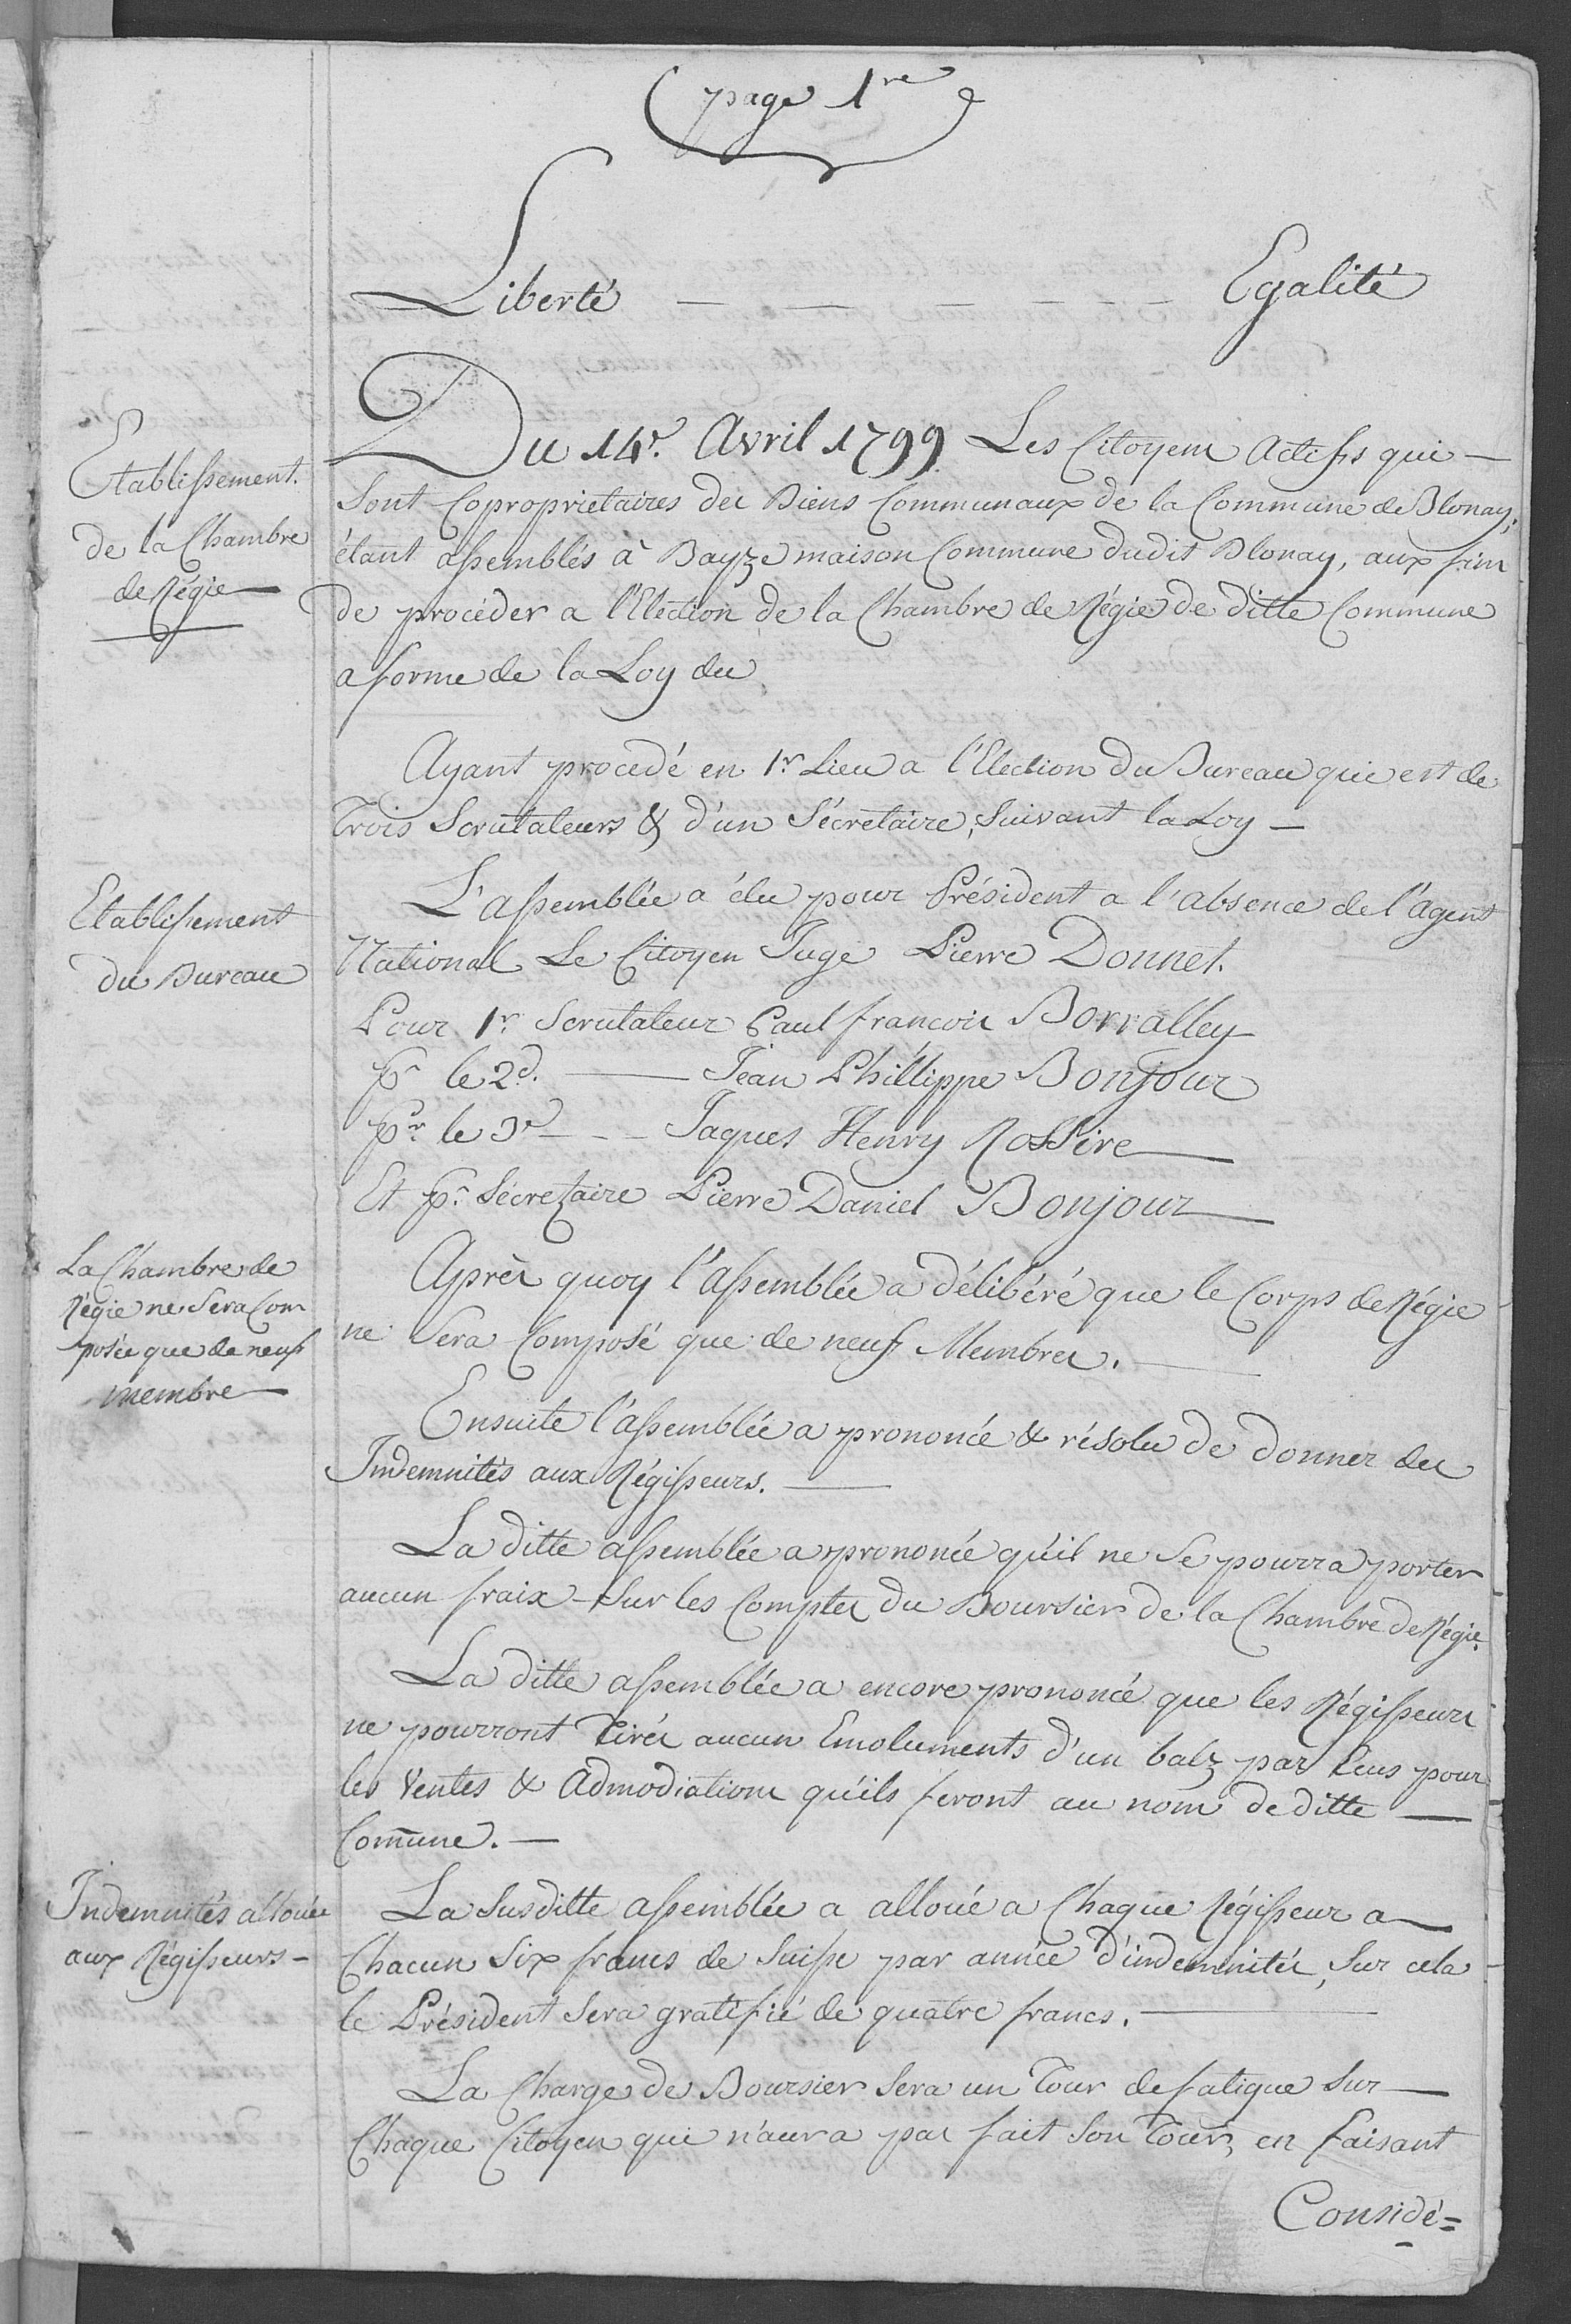 page 1re
Liberté — — — — — — Egalité
Etablissement
de la Chambre
de Régie —
Du 14e. Avril 1799 Les Citoyens Actifs qui —
Sont Coproprietaires des Biens Communaux de la Commune de Blonay,
étant assemblés à Bayze maison Commune dudit Blonay, aux fins
de procéder a l'Election de la Chambre de Régie de ditte Commune
a forme de la Loy du
Ayant procedé en 1r. Lieu a l'Election du Bureau qui est de
Trois Scrutateurs & d'un Sécretaire, Suivant la Loy —
Etablissement
du Bureau
L'assemblée a élu pour Président a l'absence de l'agent
National Le Citoyen Juge Pierre Donnet.
Pour 1r. Scrutateur Paul françois Borralley
pr le 2d. — Jean Phillippe Bonjour
pr. le 3e — Jaques Henry Rossire —
Et pr. Sécretaire Pierre Daniel Bonjour —
La Chambre de
Régie ne Sera Com
posée que de neuf
membre —
Après quoy l'assemblée a délibéré que le Corps de Régie
ne Sera Composé que de neuf Membres. —
Ensuite l'assemblée a prononcé & résolu de donner des
Indemnités aux Régisseurs. —
La ditte assemblée a prononcé qu'il ne Se pourra porter
aucun fraix Sur les Comptes du Boursier de la Chambre de Régie.
La ditte assemblée a encore prononcé que les Régisseurs
ne pourront Tirer aucun Emoluments d'un batz par Ecus pour
les Ventes & Admodiations qu'ils feront au nom de ditte —
Com̄une. —
Indemnités allouée
aux Régisseurs —
La Susditte assemblée a alloué a Chaque Régisseur a —
Chacun Six francs de Suisse par année d'indemnités, Sur cela
le Président Sera gratifié de quatre francs. —
La Charge de Boursier Sera un Tour de fatigue Sur —
Chaque Citoyen qui n'aura pas fait Son Tour, en faisant
Considé=